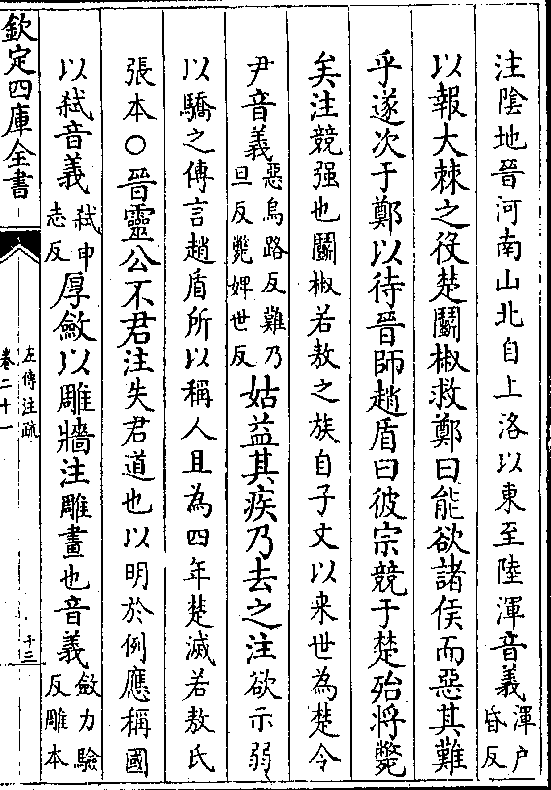 注陰地晉河南山北自上洛以東至陸渾音義渾户昏反
以報大棘之役楚鬬椒救鄭曰能欲諸侯而惡其難
乎遂次于鄭以待晉師趙盾曰彼宗競于楚殆將斃
矣注競强也鬬椒若敖之族自子文以來世為楚令
尹音義惡烏路反難乃旦反斃婢世反姑益其疾乃去之注欲示弱
以驕之傳言趙盾所以稱人且為四年楚滅若敖氏
張本○晉靈公不君注失君道也以明於例應稱國
以弑音義弑申志反厚斂以雕牆注雕畫也音義斂力驗反雕本
欽定四庫全書
左傳注疏
卷二十一
十三